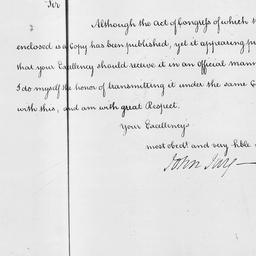 Sir
Although the Act of Congress of which
enclosed is a Copy has been published, yet it appearing
that your Excellency should receive it in an official
I do myself the honor of transmitting it under the same
with this, and am with great Respect.
Your Excellency's
most obedt. and very hble
John Jay